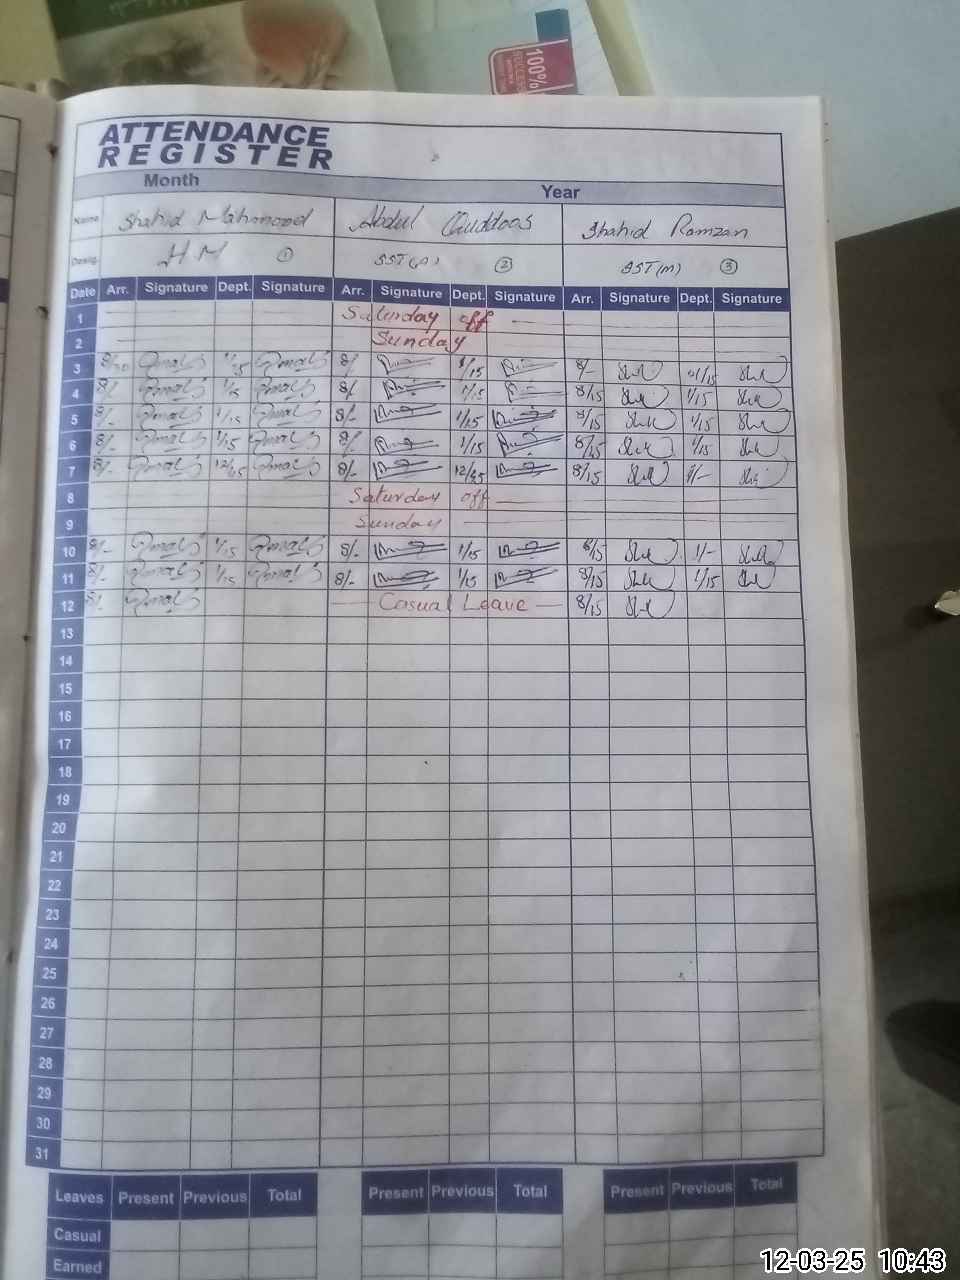 100%
SUCCESS
ATTENDANCE
REGISTER
Month Year
Name Shahid Mahmood Abdul Quddoos Shahid Ramzan
Desig. HM ① SST ② SST (M) ③
Date Arr. Signature Dept. Signature Arr. Signature Dept. Signature Arr. Signature Dept. Signature
1 Saturday off
2 Sunday
3 8/- 1/15 8/- 1/15 8/-
4 8/- 1/15 8/- 1/15 8/15 1/15
5 8/- 1/15 8/- 1/15 8/15 1/15
6 8/- 1/15 8/- 1/15 8/15 1/15
7 8/- 8/- 8/15
8 Saturday off
9 Sunday
10 8/- 1/15 8/- 1/15 8/15 1/-
11 8/- 1/15 8/- 1/15 8/15 1/15
12 8/- Casual Leave 8/15
13
14
15
16
17
18
19
20
21
22
23
24
25
26
27
28
29
30
31
Leaves Present Previous Total Present Previous Total Present Previous Total
Casual
Earned
12-03-25 10:43